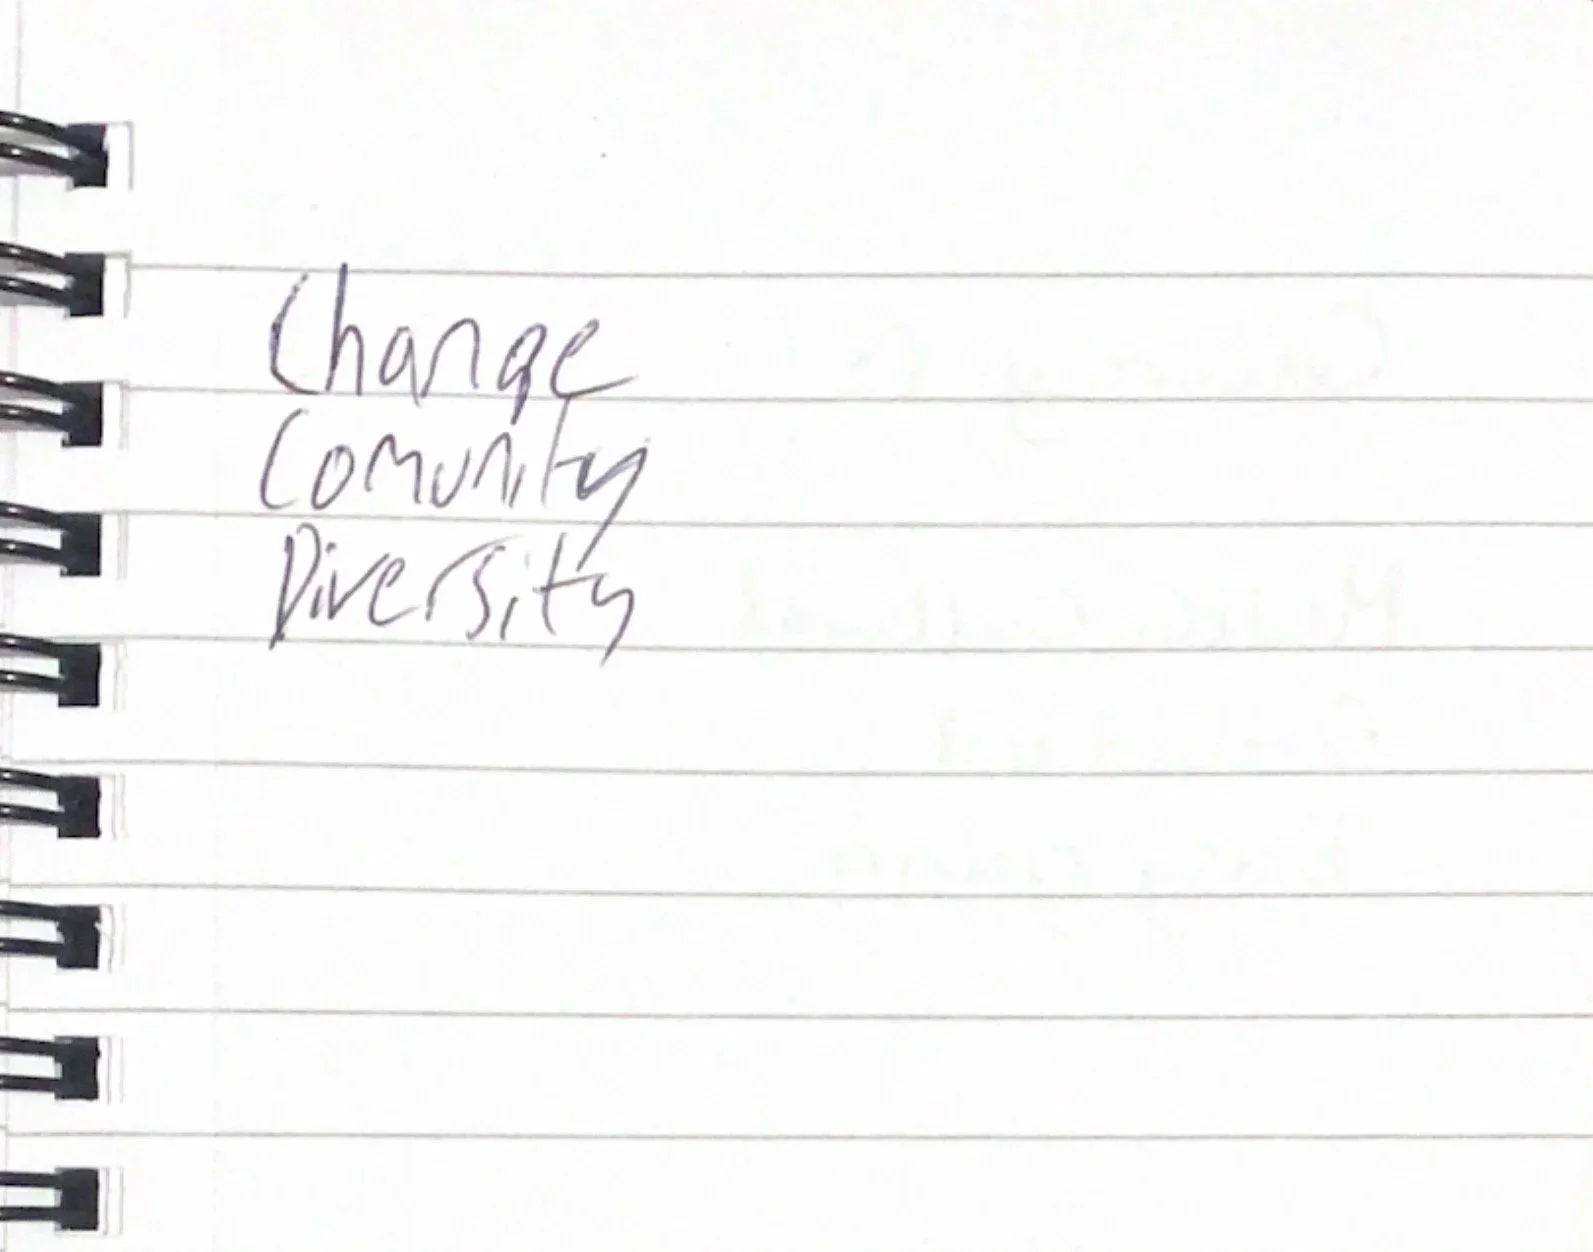 Change
Comunity
Diversity